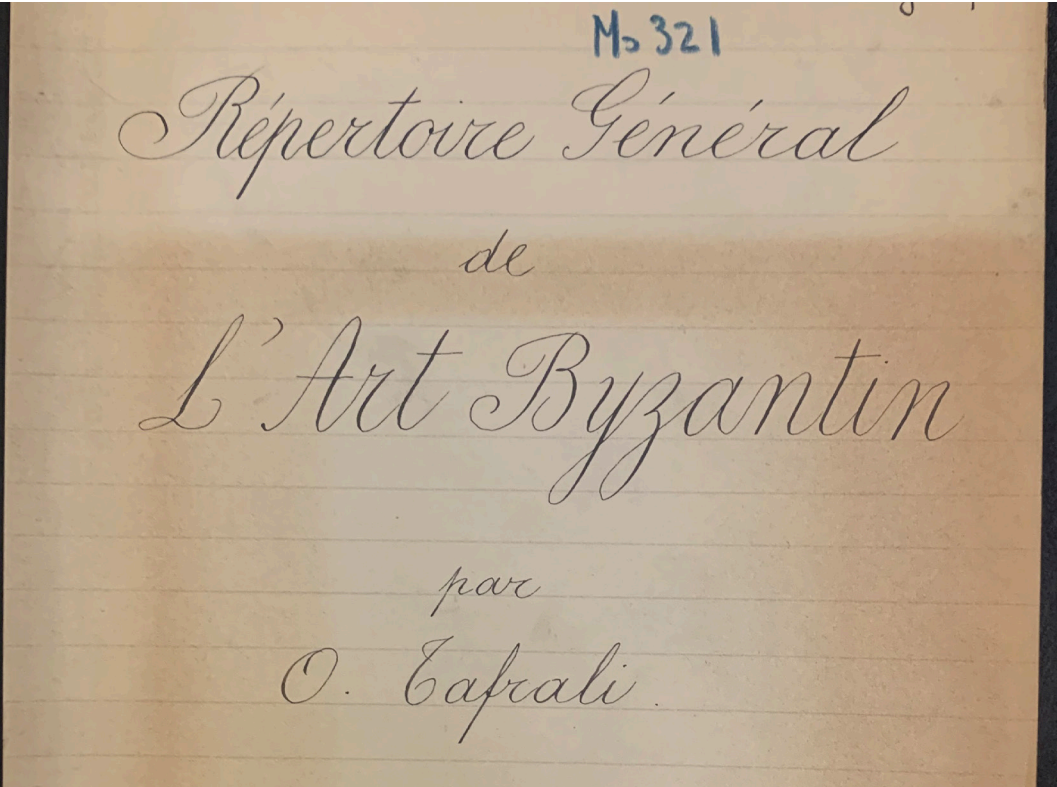 Ms 321
Répertoire Général
de
L'Art Byzantin
par
O. Tafrali.